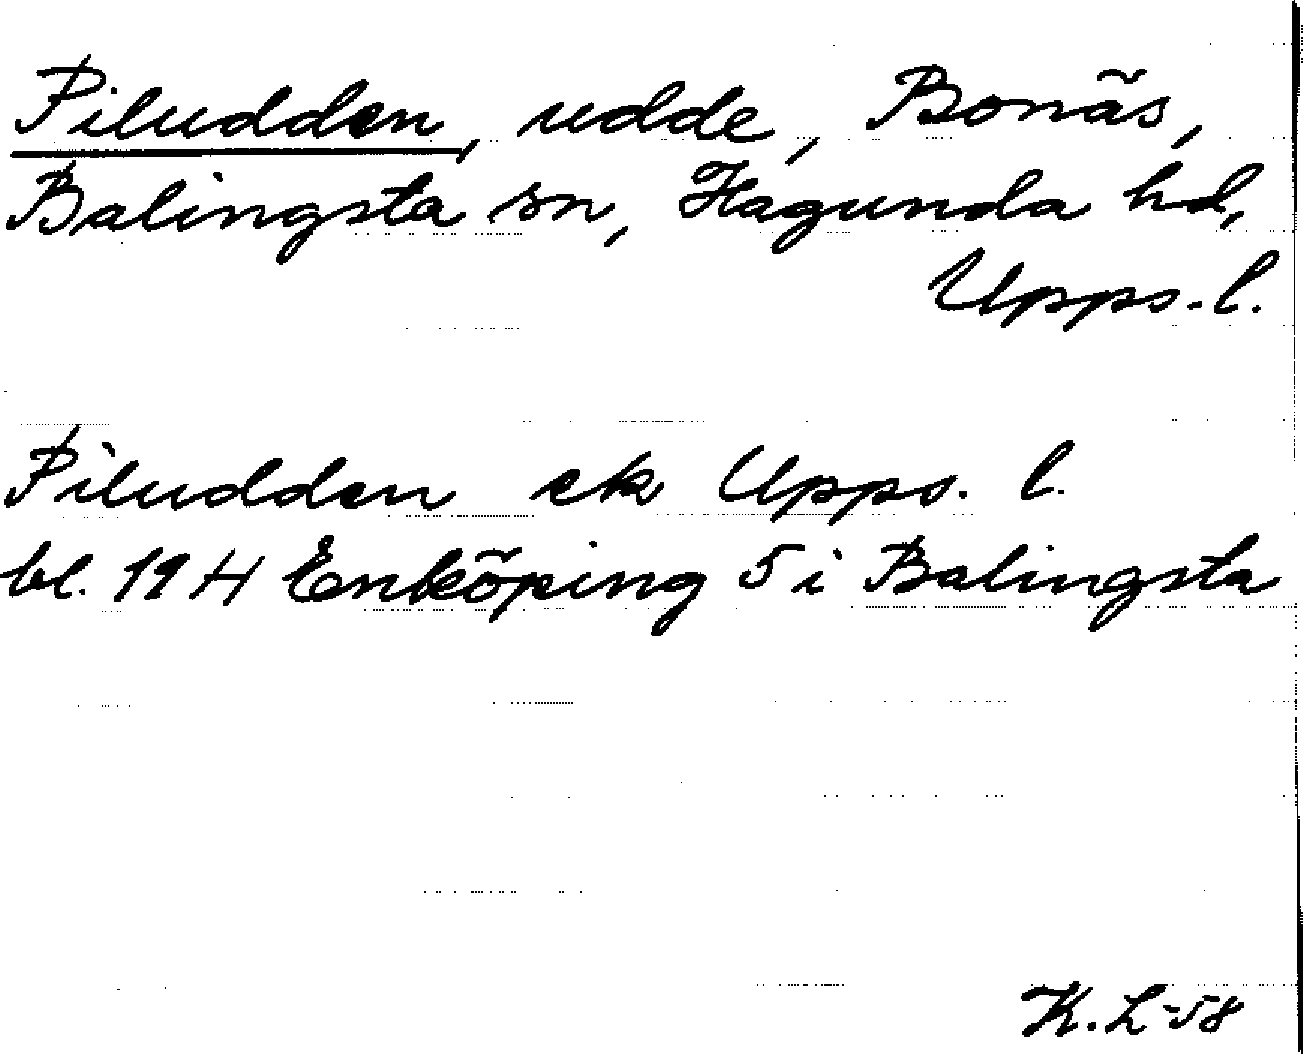 Piludden, udde, Bonäs,
Balingsta sn, Hagunda hd,
Upps. l.
Piludden ek Upps. l.
bl. 19 H Enköping 5 i Balingsta
K. L-58